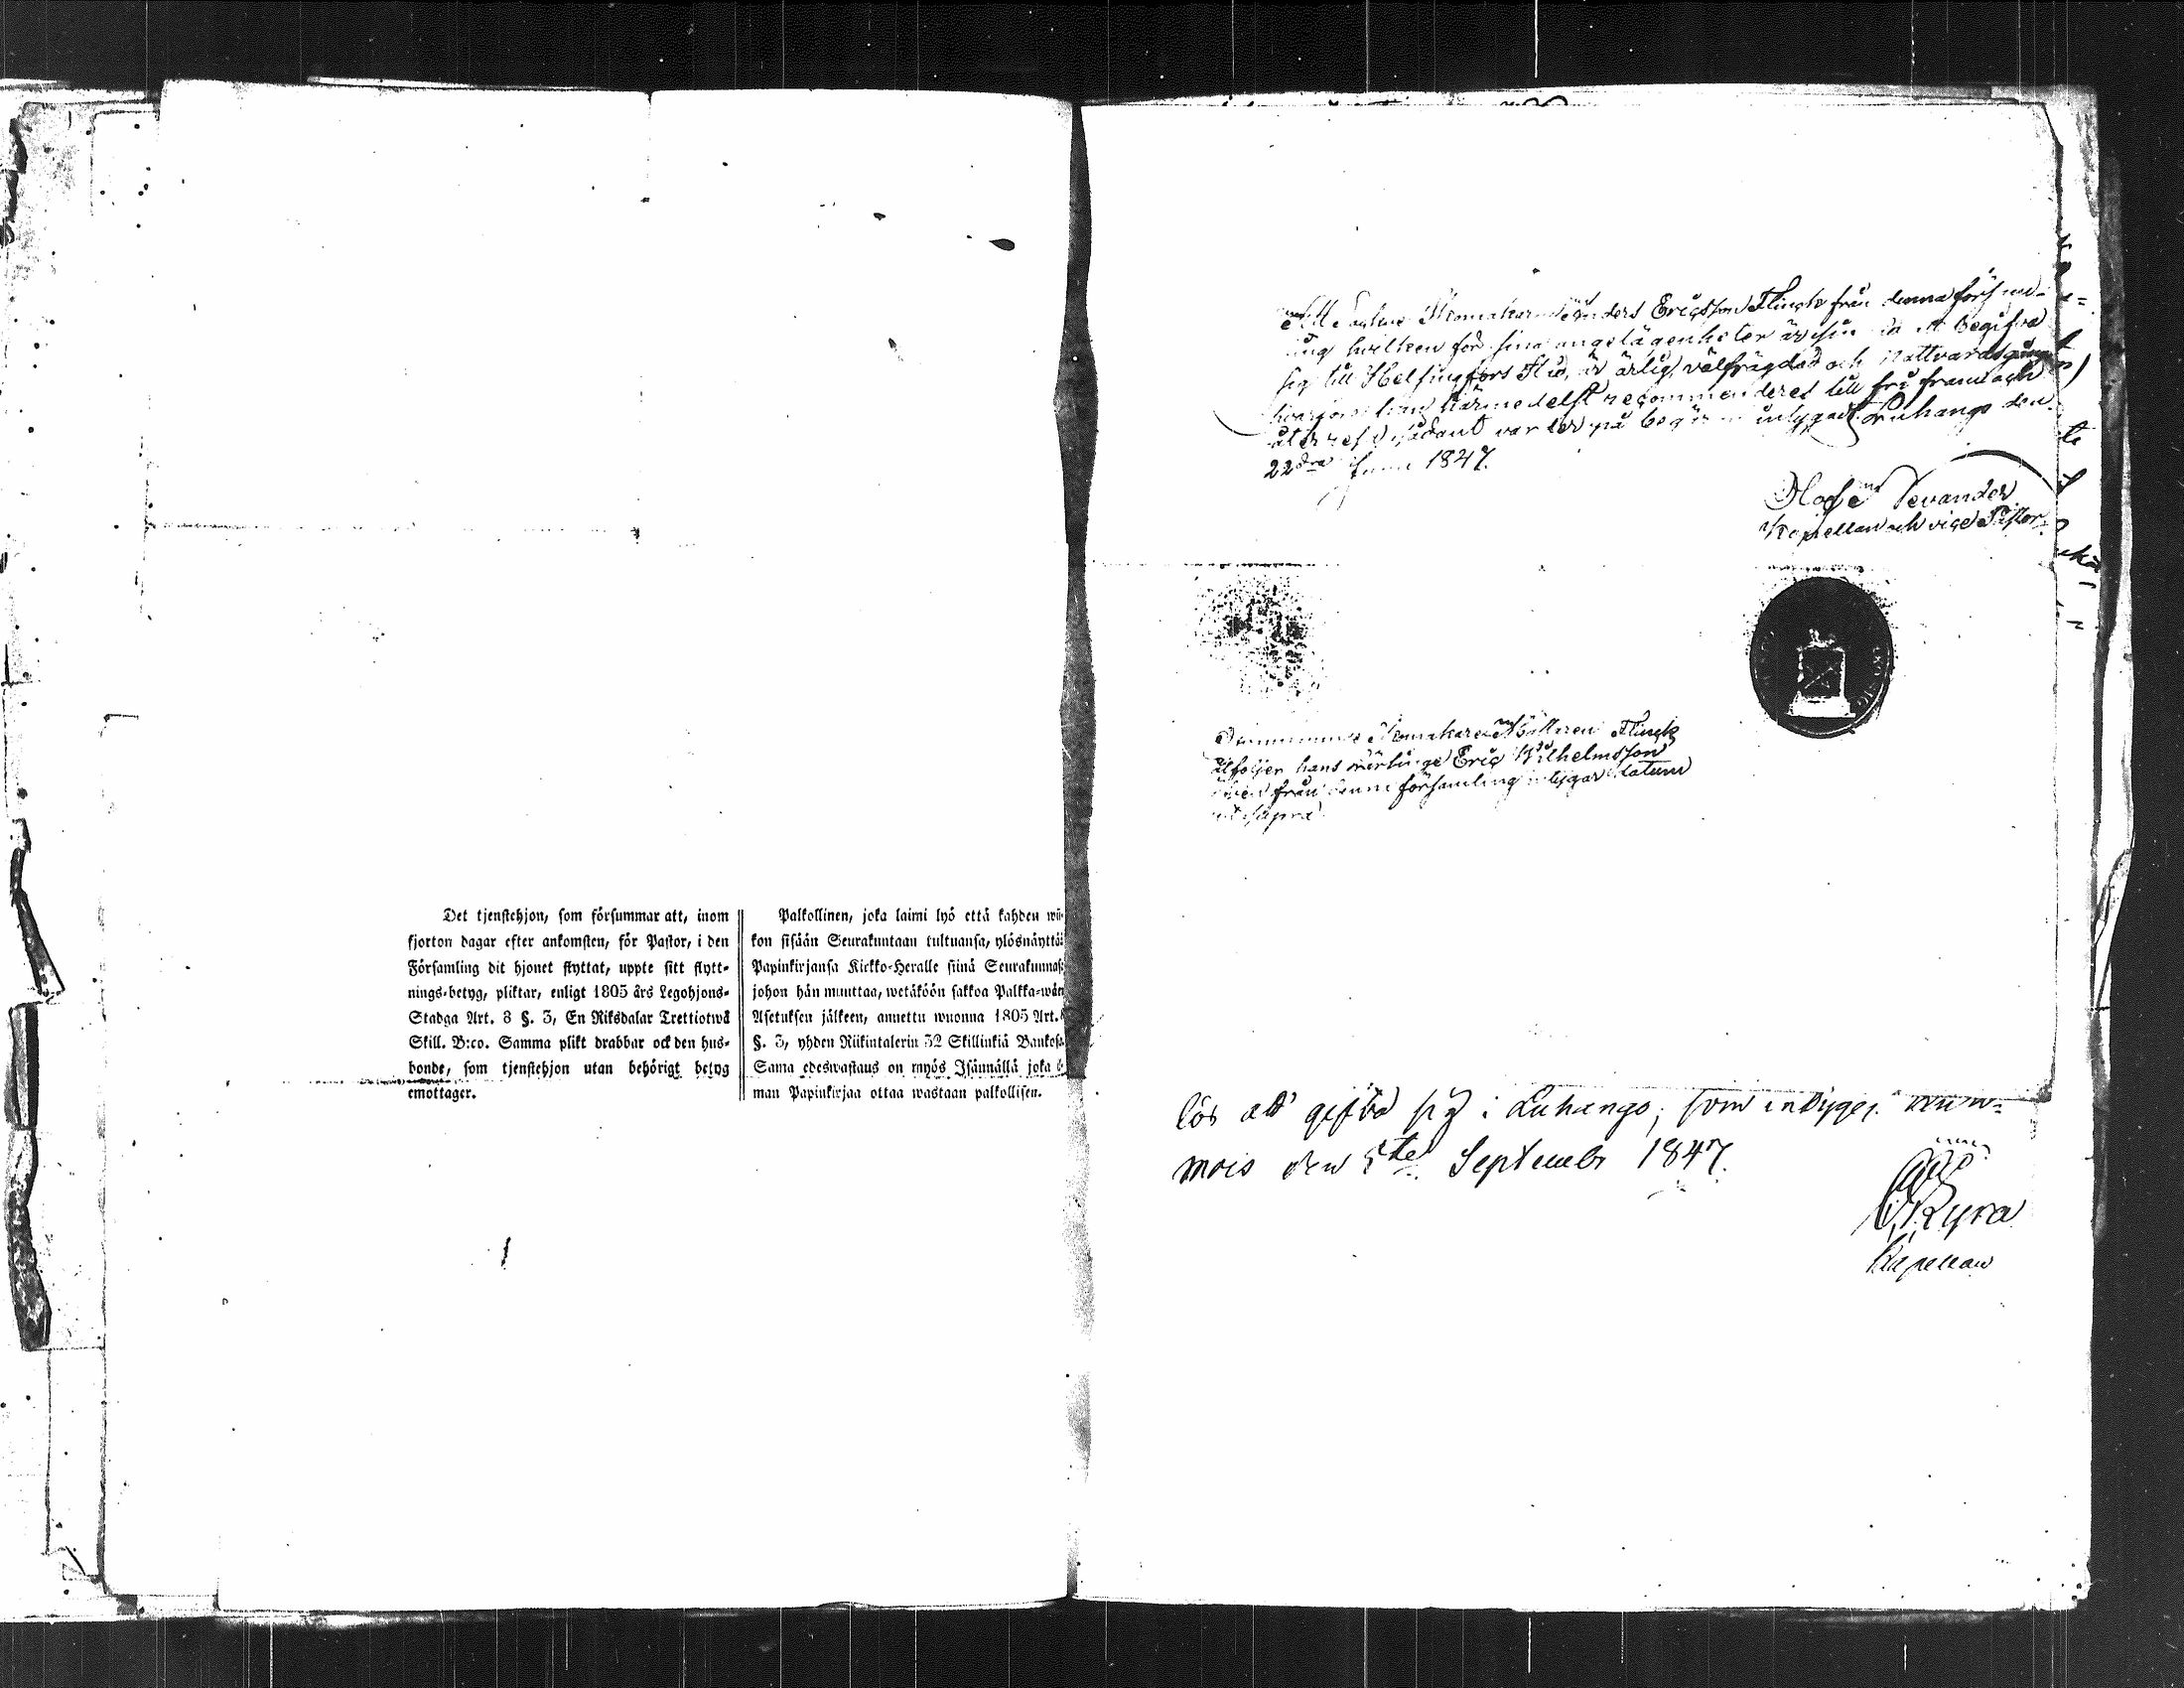 Det tjenstehjon, som försummar att, inom
fjorton dagar efter ankomsten, för Pastor, i den
Församling dit hjonet flyttat, uppte sitt flytt-
nings-betyg, pliktar, enligt 1805 års Legohjons-
Stadga Art. 8 §. 3, En Riksdalar Trettiotwå
Skill. B:co. Samma plikt drabbar ock den hus-
bonde, som tjenstehjon utan behörigt betyg
emottager.
Palkollinen, joka laimi lyö että kahden wii-
kon sisään Seurakuntaan tultuansa, ylösnäyttää
Papinkirjansa Kirkko-Heralle siinä Seurakunnas
johon hän muuttaa, wetäköön sakkoa Palkka-wäen
Asetuksen jälkeen, annettu wuonna 1805 Art.
§. 3, yhden Riikintalerin 32 Skillinkiä Bankosa
Sama edeswastaus on myös Isännällä joka
man Papinkirjaa ottaa wastaan palkollisen.
Anders Ericsson Flinck från denna försam-
ling hvilken för sina angelägenheter är sinnad att begifva
sig till Helsingfors Stad, är ärlig, välfrägdad och Nattvardsgången
hvarföre han härmedelst recommenderas till fri fram och
återresa sådant varder på begäran intygadt. Luhango den
22dra Juni 1847.
Kapellan och vice Pastor.
Flinck
åtföljer hans lärlinge Eric Wilhelmsson
även från denna församling intygar datum
ut supra
lös att gifva sig i Luhango; som intygas
mois den 5te Septembr 1847.
Kyra
Kapellan